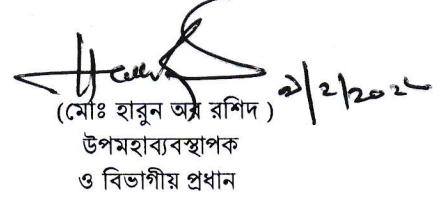 (মোঃ হারুন অর রশিদ)
উপমহাব্যবস্থাপক
ও বিভাগীয় প্রধান